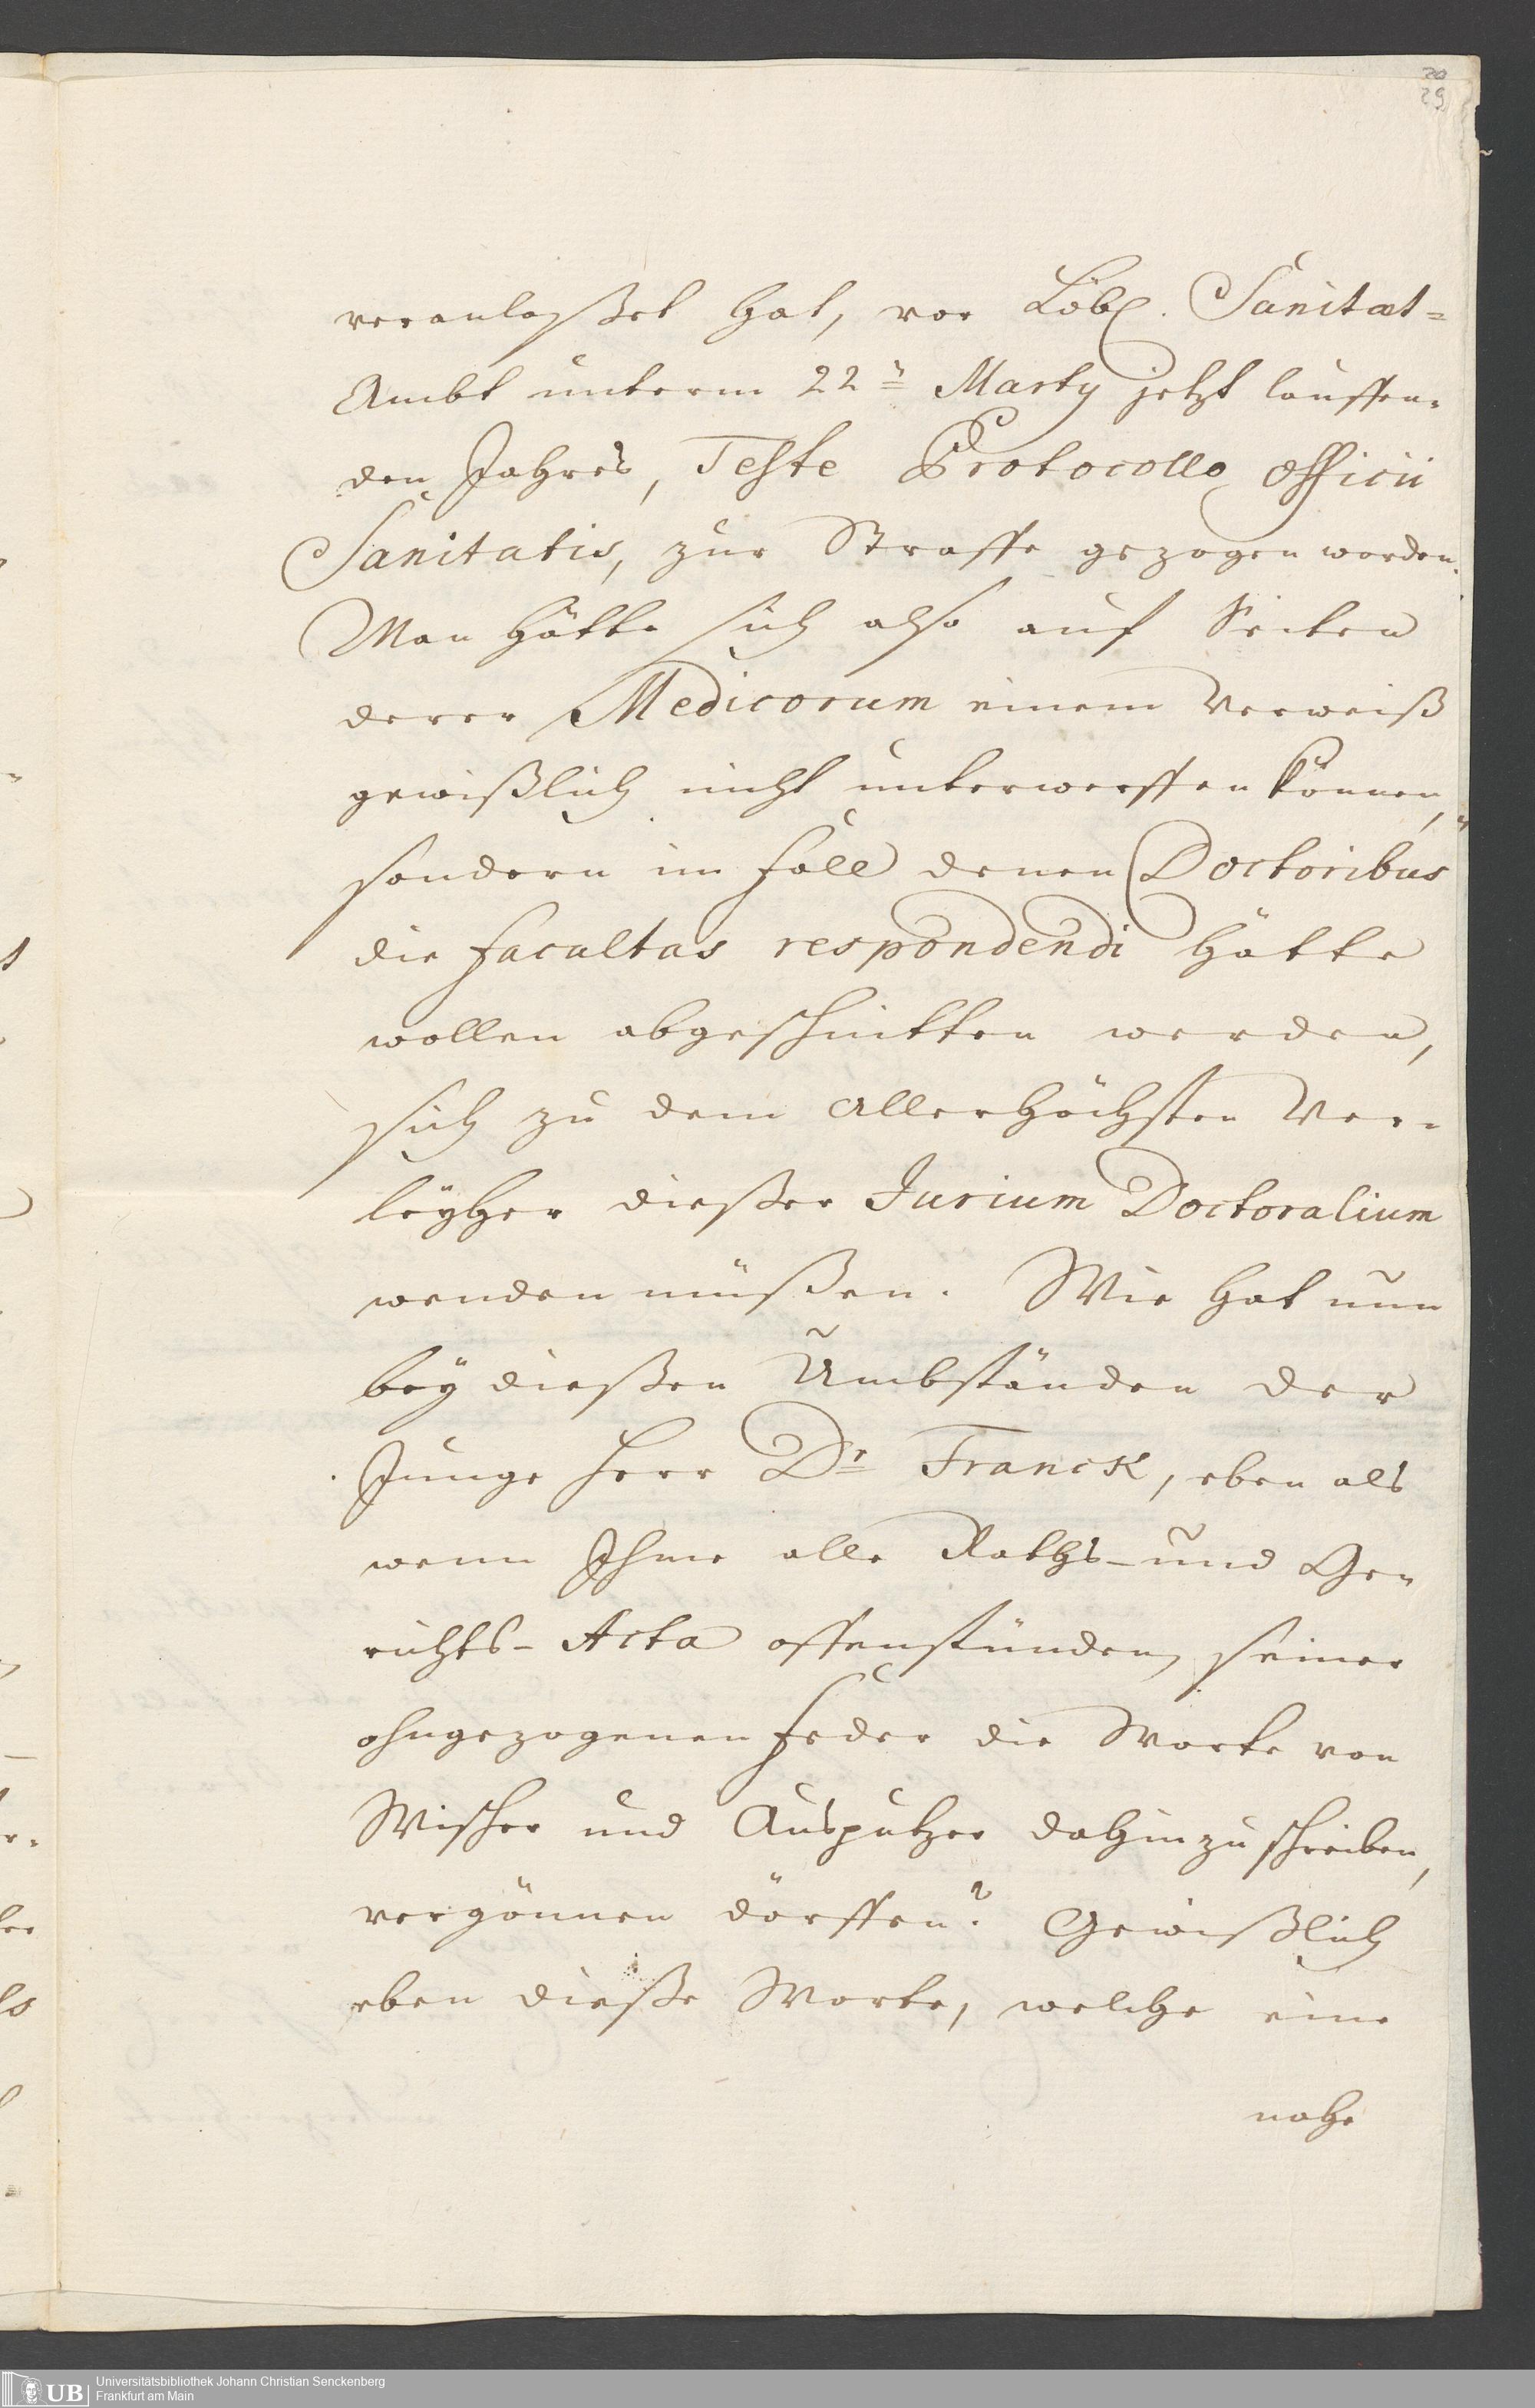 20
29
veranlaßet hat, vor Löbl. Sanitæt=
Ambt unterm 22n Marty jetzt lauffen=
den Jahres, Teste Protocollo officii
Sanitatis, zur Straffe gezogen worden.
Man hätte sich also auf Seiten
derer Medicorum einem Verweiß
gewißlich nicht unterwerffen können,
sondern im Fall denen Doctoribus
die facultas respondendi hätte
wollen abgeschnitten werden,
sich zu dem Allerhöchsten Ver=
leyher dießer Jurium Doctoralium
wenden müßen. Wie hat nun
bey dießen Umbständen der
Junge Herr Dr Franck, eben als
wenn Ihme alle Raths- und Ge=
richts- Acta offenstünden, seiner
ohngezogenen Feder die Worte von
Wischer und Ausputzer dahinzuschreiben,
vergönnen dörffen? Gewißlich
eben dieße Worte, welche eine
nahe
UB
Universitätsbibliothek Johann Christian Senckenberg
Frankfurt am Main